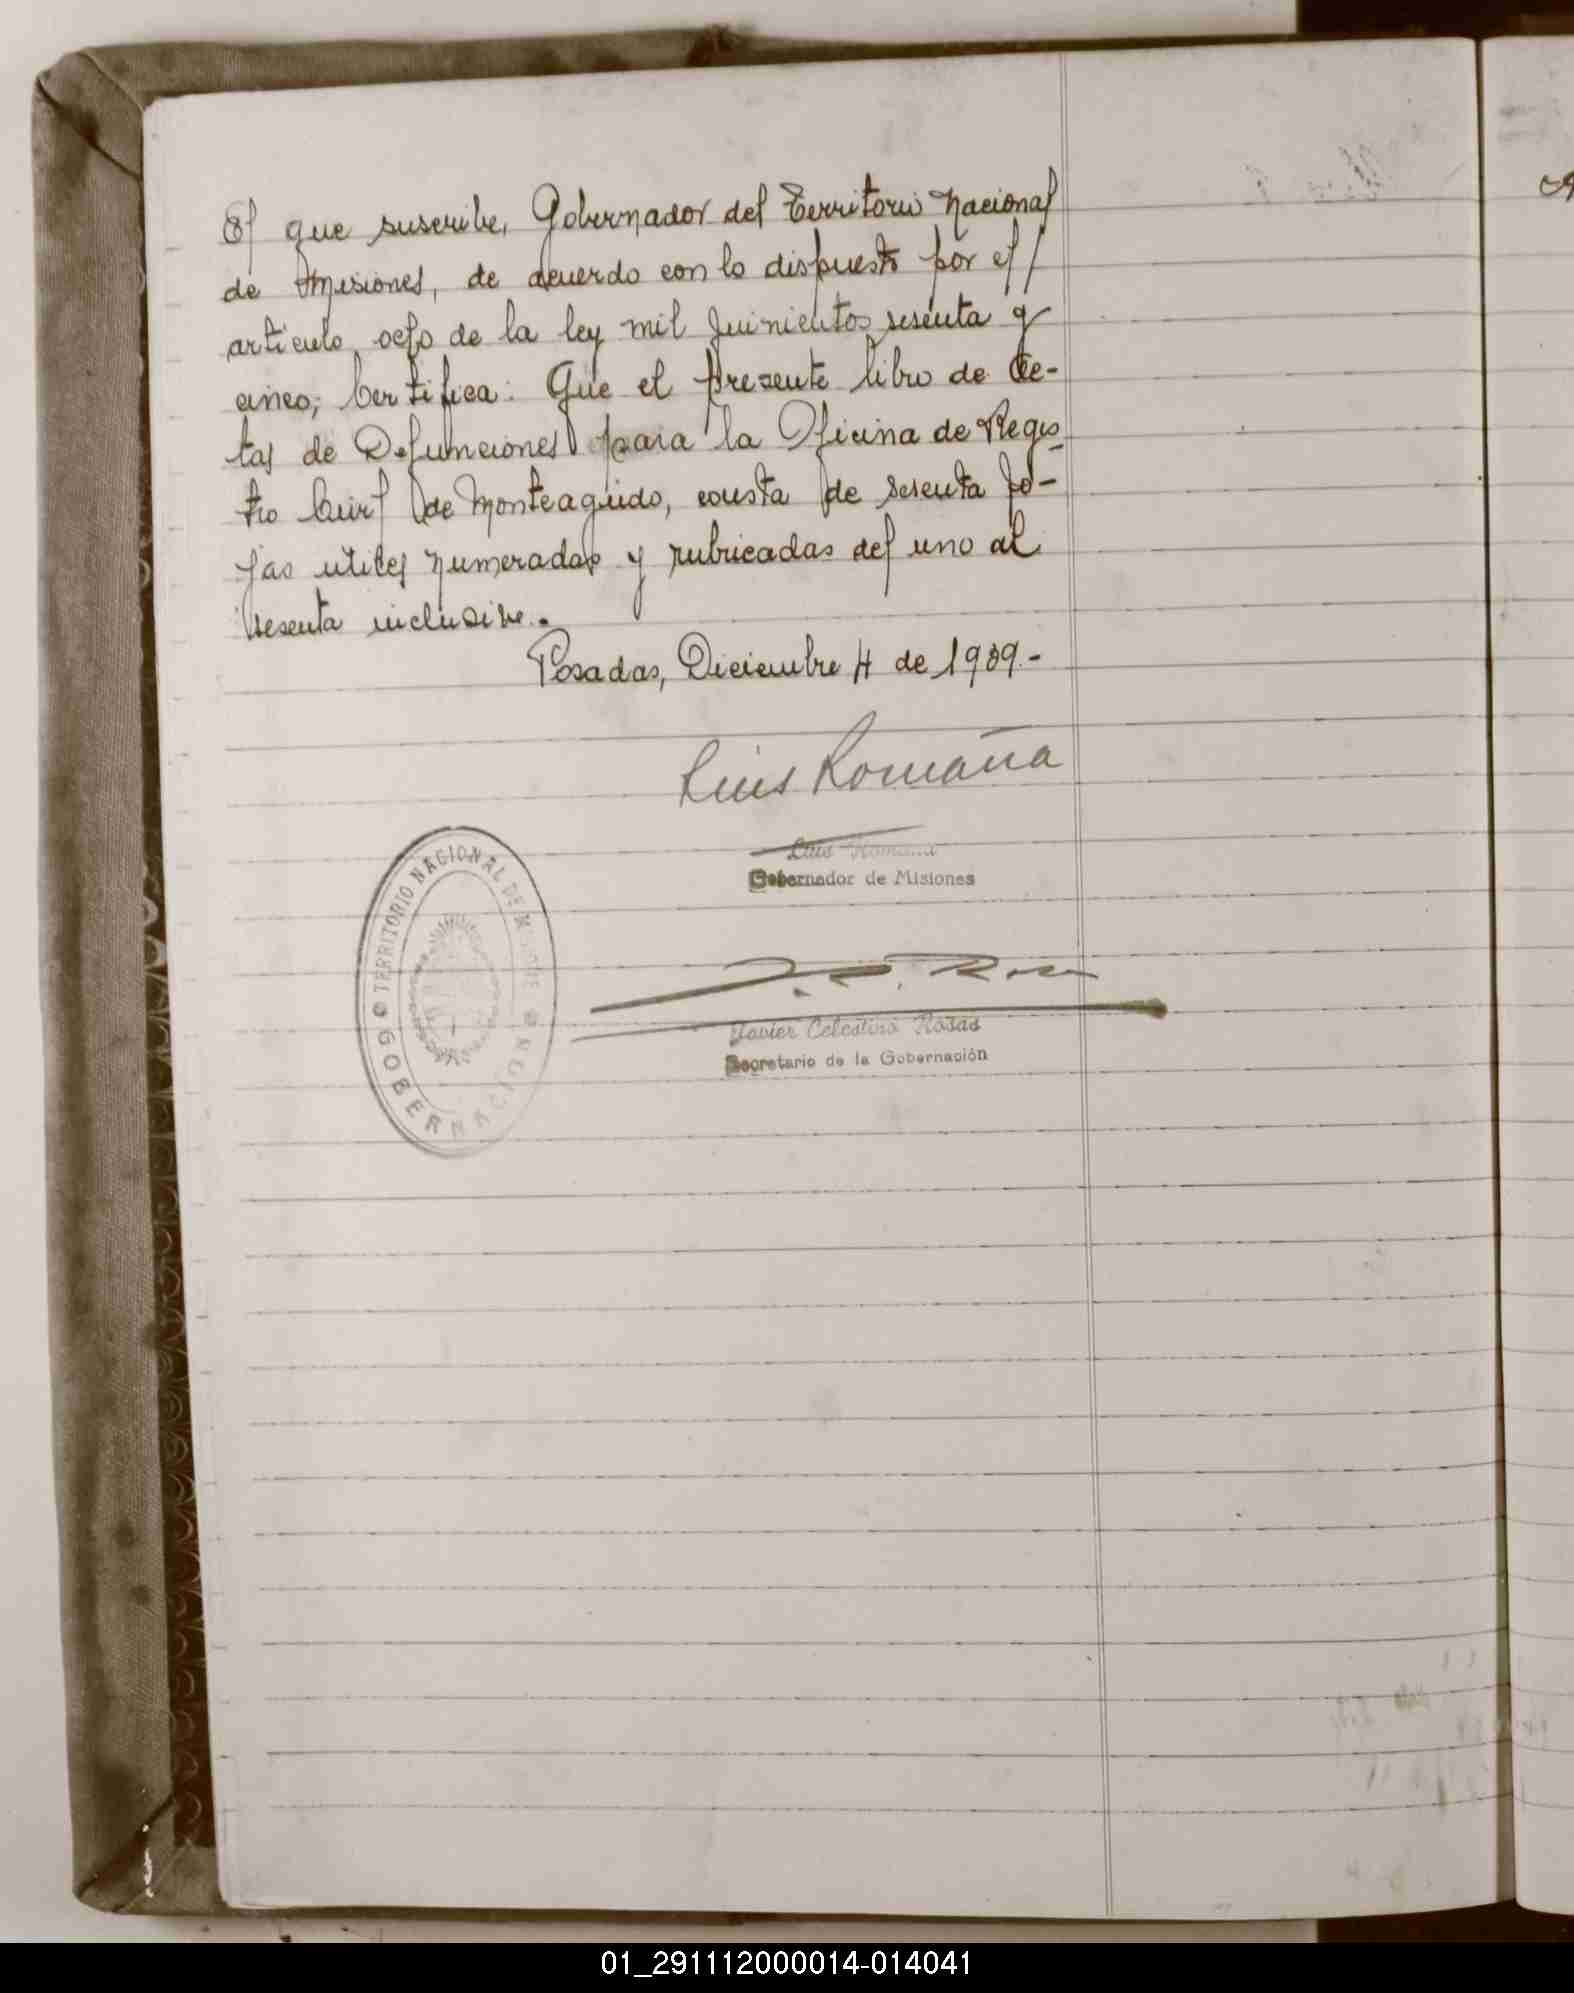 El que suscribe, Gobernador del Territorio Nacional
de Misiones, de acuerdo con lo dispuesto por el /
articulo ocho de la ley mil quinientos sesenta y
cinco; Certifica: Que el presente libro de Ac-
tas de Defunciones para la Oficina de Regis-
tro Civil de Monteagudo, consta de sesenta fo-
jas utiles numeradas y rubricadas del uno al
sesenta inclusive.-
Posadas, Diciembre 4 de 1939.-
Luis Romaña
Luis Romaña
Gobernador de Misiones
J. C. Rosas
Javier Celestino Rosas
Secretario de la Gobernación
TERRITORIO NACIONAL DE MISIONES
GOBERNACION
01_291112000014-014041